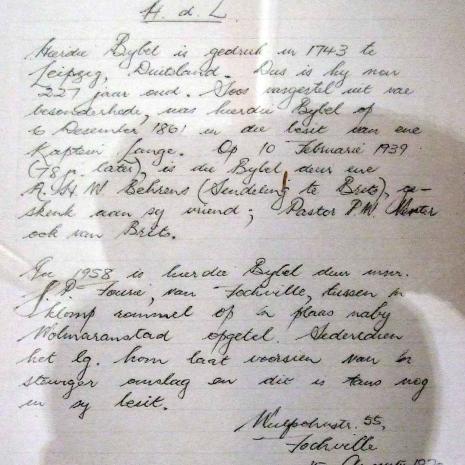 H. d. L.
Hierdie Bybel is gedruk in 1743 te
Leipzig, Duitsland. Dus is hy nou
227 jaar oud. Soos vasgestel uit vae
besonderhede, was hierdie Bybel op
6 Desember 1861 in die besit van ene
Kaptein Lange. Op 10 Februarie 1939
(78 jr. later), is die Bybel deur ene
A.H.W. Behrens (Sendeling te Brits), ge-
skenk aan sy vriend; Pastor P.W.
ook van Brits.
In 1958 is hierdie Bybel deur mnr.
J.P. Fourie, van Fochville, tussen 'n
klomp rommel op 'n plaas naby
Wolmaranstad opgetel. Sedertdien
het lg. hom laat voorsien van 'n
stewiger omslag en dit is tans nog
in sy besit.
55,
Fochville